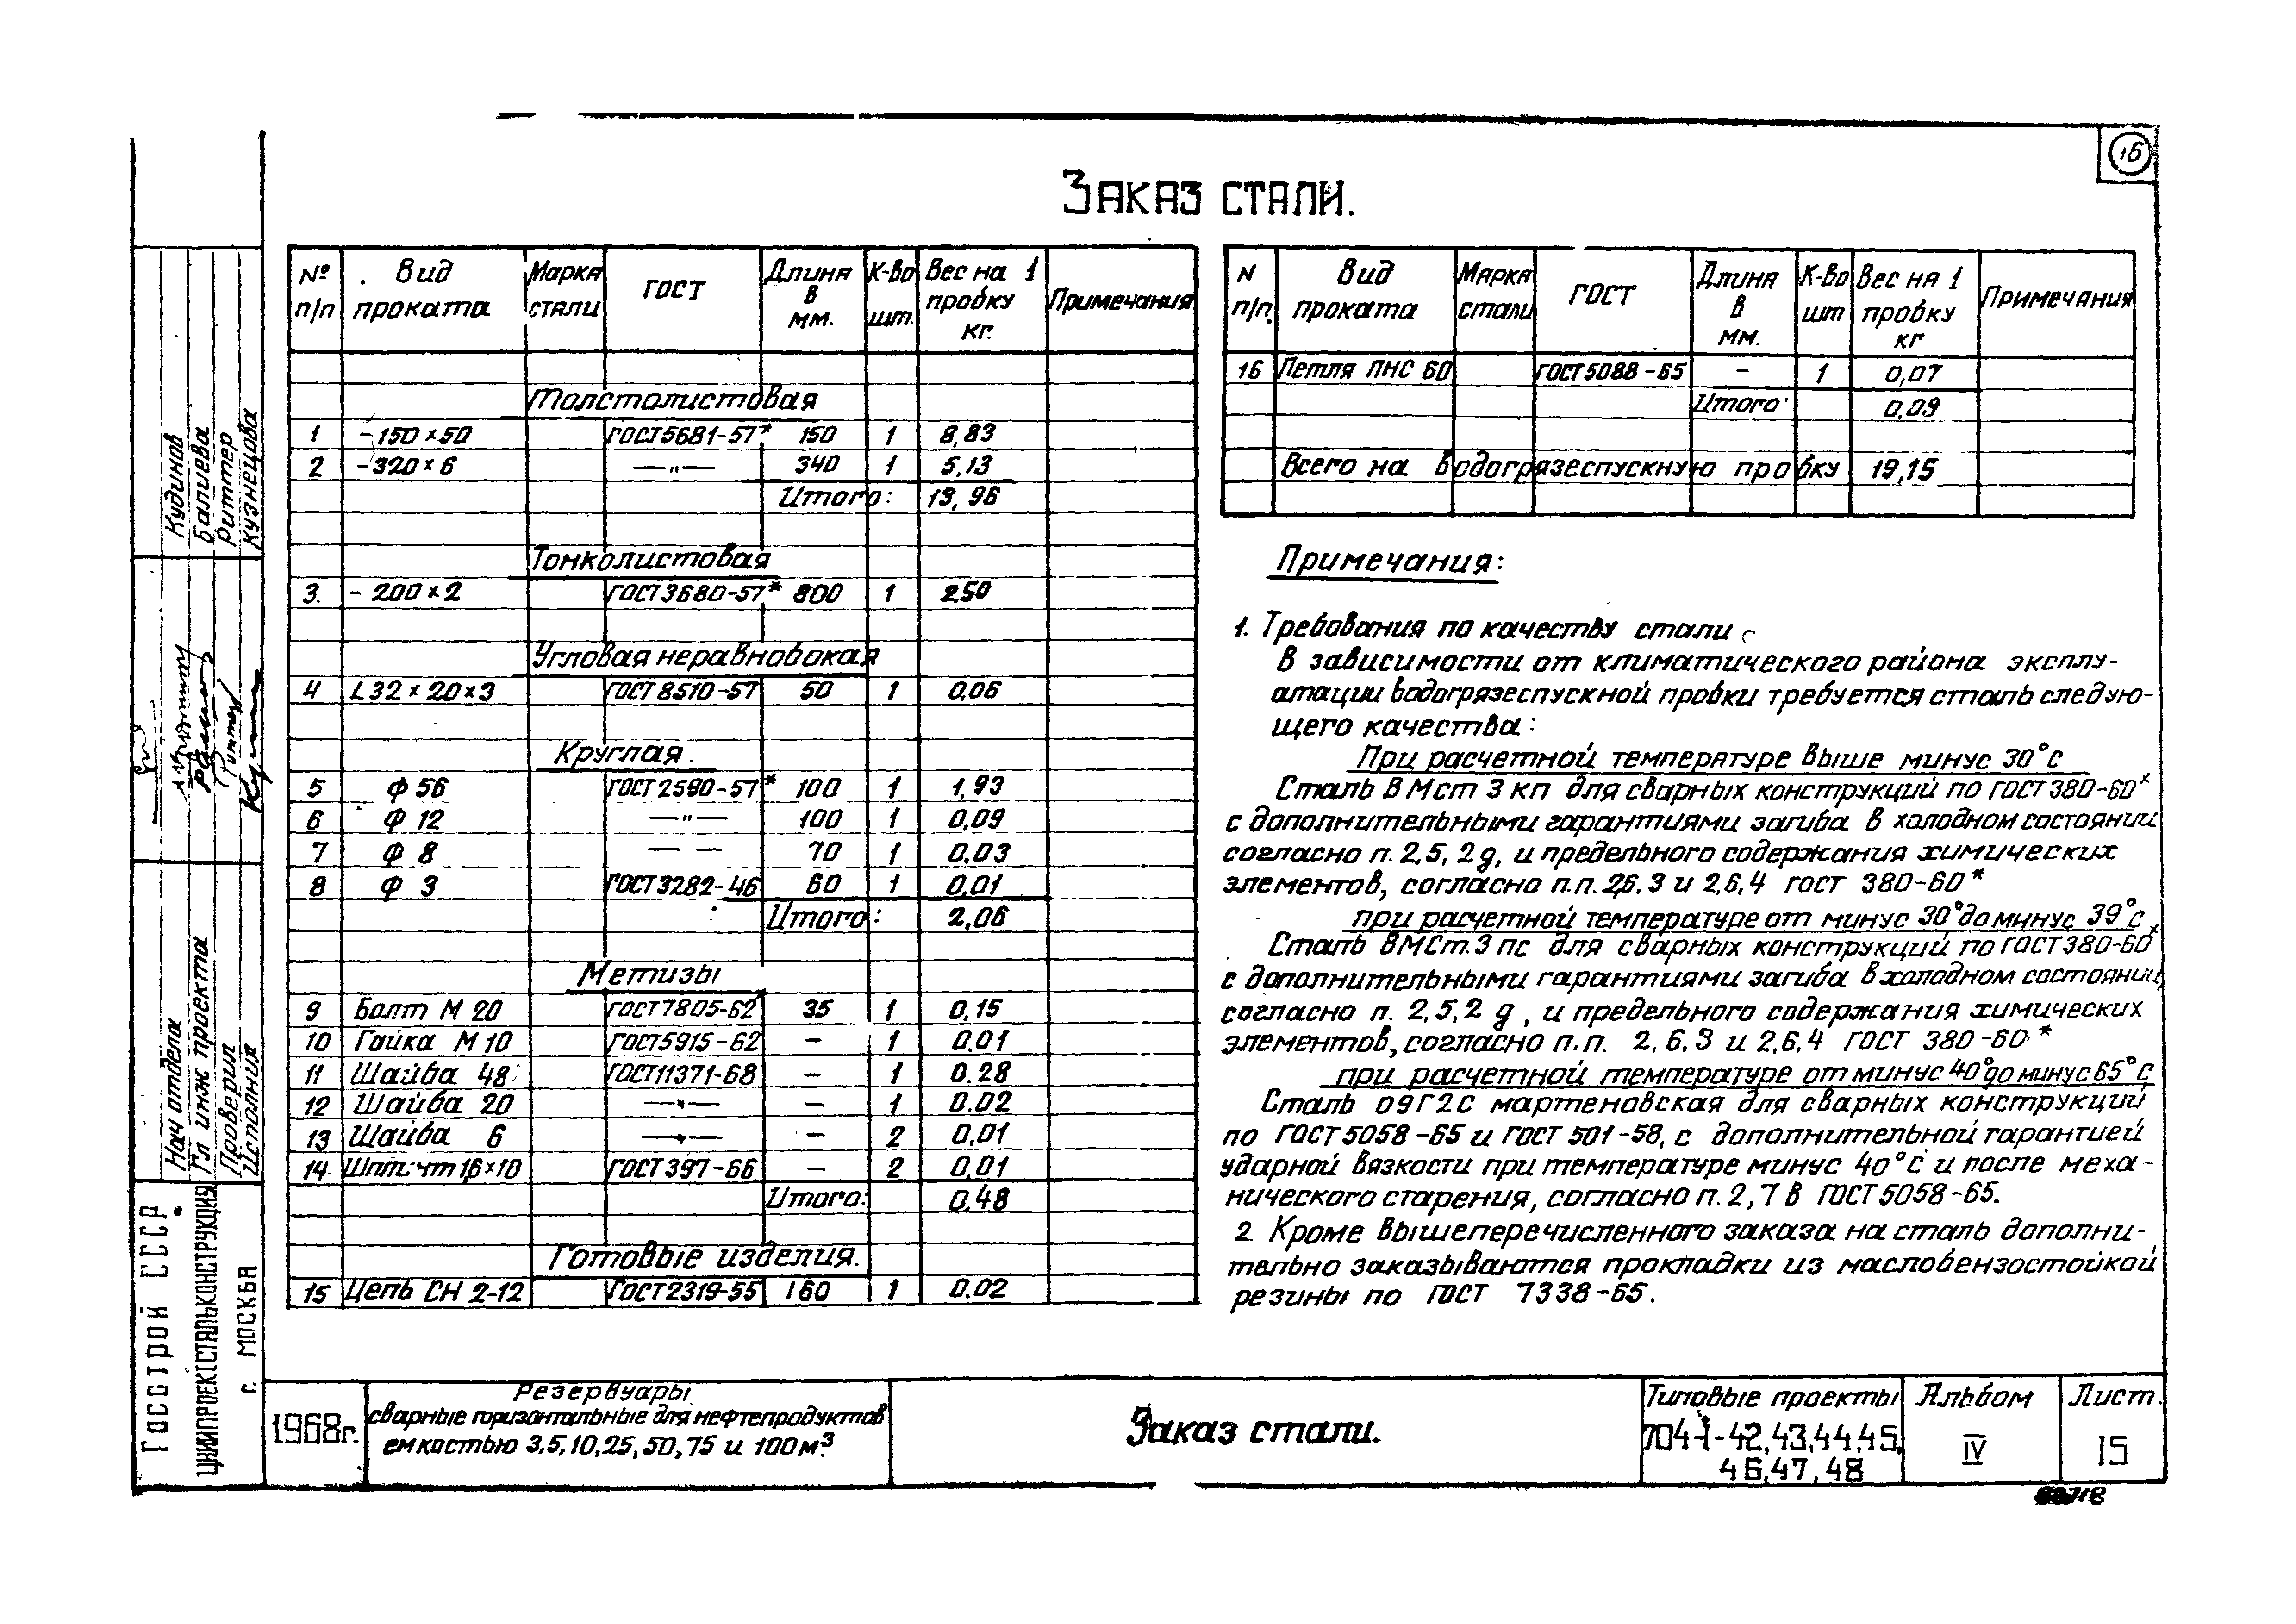 16
Заказ стали.
№ п/п Вид проката Марка стали ГОСТ Длина в мм. К-во шт. Вес на 1 пробку кг. Примечания
Толстолистовая
1 -150×50 ГОСТ5681-57* 150 1 8,83
2 -320×6 —"— 340 1 5,13
Итого: 13,96
Тонколистовая
3. -200×2 ГОСТ3680-57* 800 1 2,50
Угловая неравнобокая
4 L32×20×3 ГОСТ8510-57 50 1 0,06
Круглая.
5 Ф56 ГОСТ2590-57* 100 1 1,93
6 Ф12 —"— 100 1 0,09
7 Ф8 — — 70 1 0,03
8 Ф3 ГОСТ3282-46 60 1 0,01
Итого: 2,06
Метизы
9 Болт М20 ГОСТ7805-62* 35 1 0,15
10 Гайка М10 ГОСТ5915-62 - 1 0,01
11 Шайба 48 ГОСТ11371-68 - 1 0.28
12 Шайба 20 —"— - 1 0.02
13 Шайба 6 —"— - 2 0,01
14 Шплинт 16×10 ГОСТ397-66 - 2 0,01
Итого: 0,48
Готовые изделия.
15 Цепь СН 2-12 ГОСТ2319-55 160 1 0.02
N п/п. Вид проката Марка стали ГОСТ Длина в мм. К-во шт Вес на 1 пробку кг Примечания
16 Петля ПНС 60 ГОСТ5088-65 - 1 0,07
Итого: 0,09
Всего на водогрязеспускную пробку 19,15
Примечания:
1. Требования по качеству стали
В зависимости от климатического района эксплу-
атации водогрязеспускной пробки требуется сталь следую-
щего качества:
При расчетной температуре выше минус 30°с
Сталь ВМст3кп для сварных конструкций по ГОСТ380-60*
с дополнительными гарантиями загиба в холодном состоянии
согласно п. 2,5, 2д, и предельного содержания химических
элементов, согласно п.п. 2,6,3 и 2,6,4 ГОСТ 380-60*
при расчетной температуре от минус 30° до минус 39°с
Сталь ВМСт.3пс для сварных конструкций по ГОСТ380-60*
с дополнительными гарантиями загиба в холодном состоянии,
согласно п. 2,5,2д, и предельного содержания химических
элементов, согласно п.п. 2,6,3 и 2,6,4 ГОСТ 380-60*
при расчетной температуре от минус 40° до минус 65°с
Сталь 09Г2С мартеновская для сварных конструкций
по ГОСТ5058-65 и ГОСТ 501-58, с дополнительной гарантией
ударной вязкости при температуре минус 40°С и после меха-
нического старения, согласно п. 2,7в ГОСТ5058-65.
2. Кроме вышеперечисленного заказа на сталь дополни-
тельно заказываются прокладки из маслобензостойкой
резины по ГОСТ 7338-65.
Госстрой СССР
ЦНИИПРОЕКТСТАЛЬКОНСТРУКЦИЯ
г. МОСКВА
Нач отдела Кудинов
Гл инж проекта Балиева
Проверил Риттер
Исполнил Кузнецова
1968г.
Резервуары
сварные горизонтальные для нефтепродуктов
емкостью 3,5,10,25,50,75 и 100м³
Заказ стали.
Типовые проекты
704-1-42,43,44,45,
46,47,48
Альбом
IV
Лист.
15